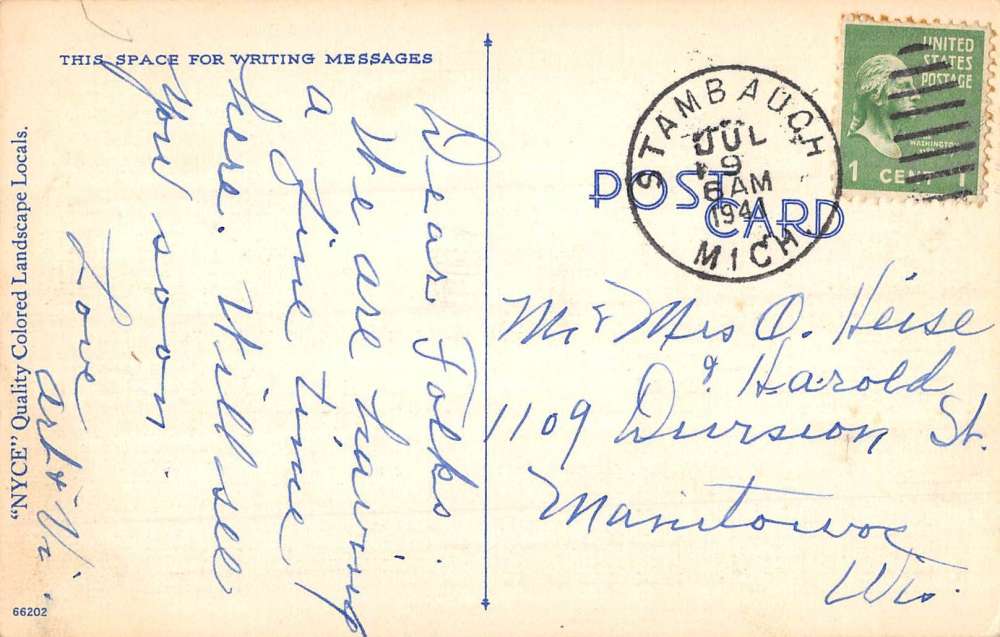 THIS SPACE FOR WRITING MESSAGES
Dear Folks.
We are having
a fine time
here. Will see
you soon.
Love
Art & Vi.
"NYCE" Quality Colored Landscape Locals.
66202
POST CARD
STAMBAUGH
JUL
9
6 AM
1941
MICH.
UNITED
STATES
POSTAGE
WASHINGTON
1 CENT 1
Mr & Mrs O. Heise
& Harold
1109 Division St.
Manitowoc
Wis.